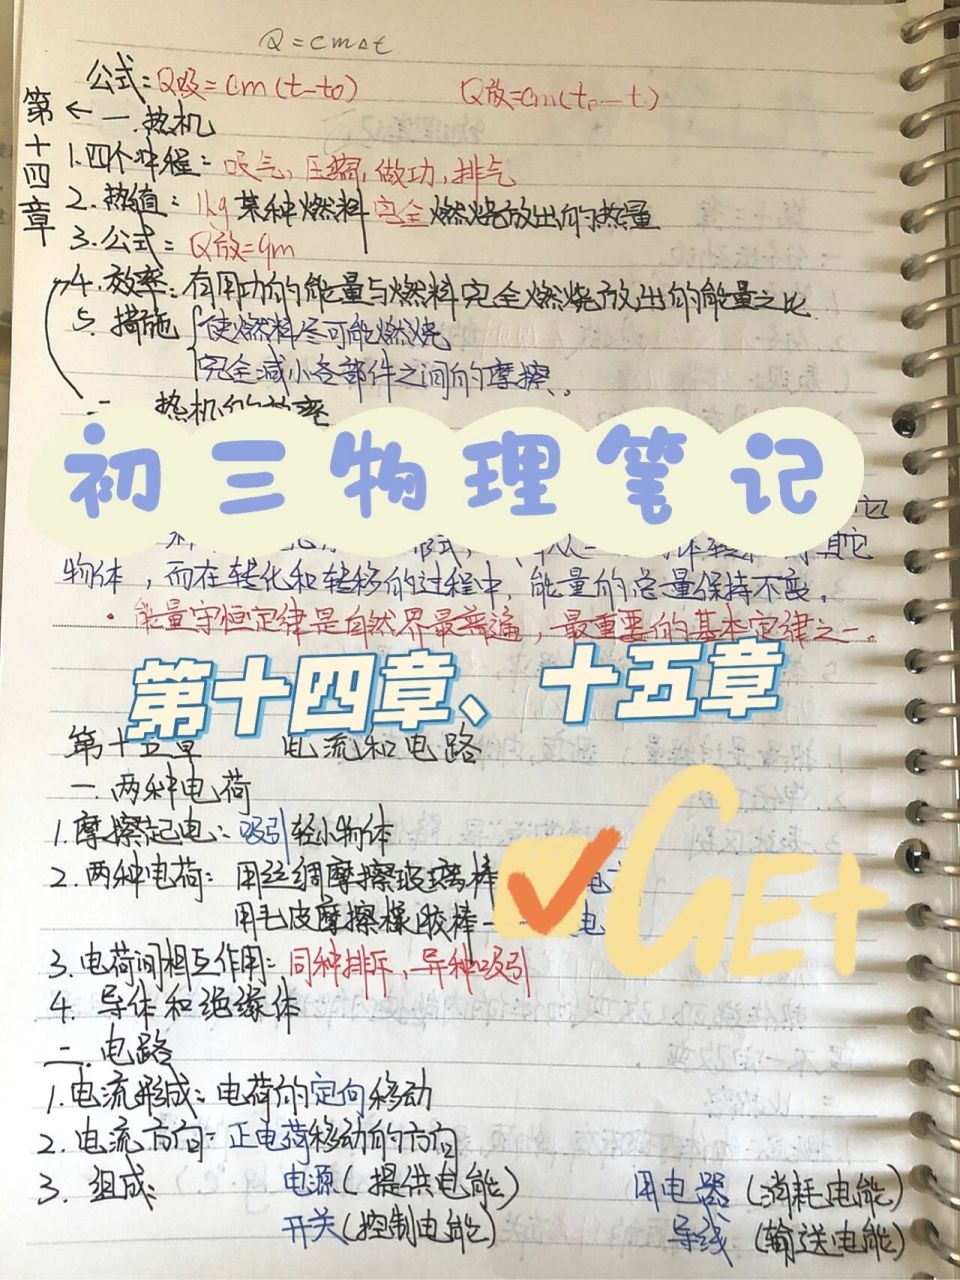 Q=cm△t
公式:Q吸=cm(t-t0) Q放=cm(t0-t)
第十四章
←一.热机
1.四个冲程:吸气,压缩,做功,排气
2.热值:1kg某种燃料完全燃烧放出的热量
3.公式:Q放=qm
4.效率:有用功的能量与燃料完全燃烧放出的能量之比
5.措施{使燃料尽可能燃烧
完全减小各部件之间的摩擦、
二 热机的效率
初三物理笔记
其它
物体,而在转化和转移的过程中,能量的总量保持不变。
·能量守恒定律是自然界最普遍,最重要的基本定律之一。
第十四章、十五章
第十五章 电流和电路
一.两种电荷
1.摩擦起电:吸引轻小物体
2.两种电荷:用丝绸摩擦玻璃棒 电
用毛皮摩擦橡胶棒- 电
GET
3.电荷间相互作用:同种排斥,异种吸引
4.导体和绝缘体
二.电路
1.电流形成:电荷的定向移动
2.电流方向:正电荷移动的方向
3.组成: 电源(提供电能) 用电器(消耗电能)
开关(控制电能) 导线(输送电能)